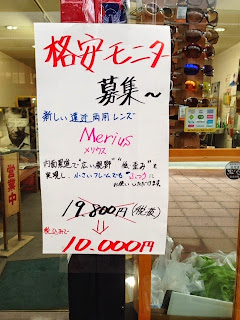 格安モニター
募集～
新しい遠近両用レンズ
Merius
メリウス
内面累進で"広い視野""低い歪み"を
実現し、小さいフレームでも
お使いいただけます。
19.800円(税抜)
⇩
税込みで
10.000円
営業中